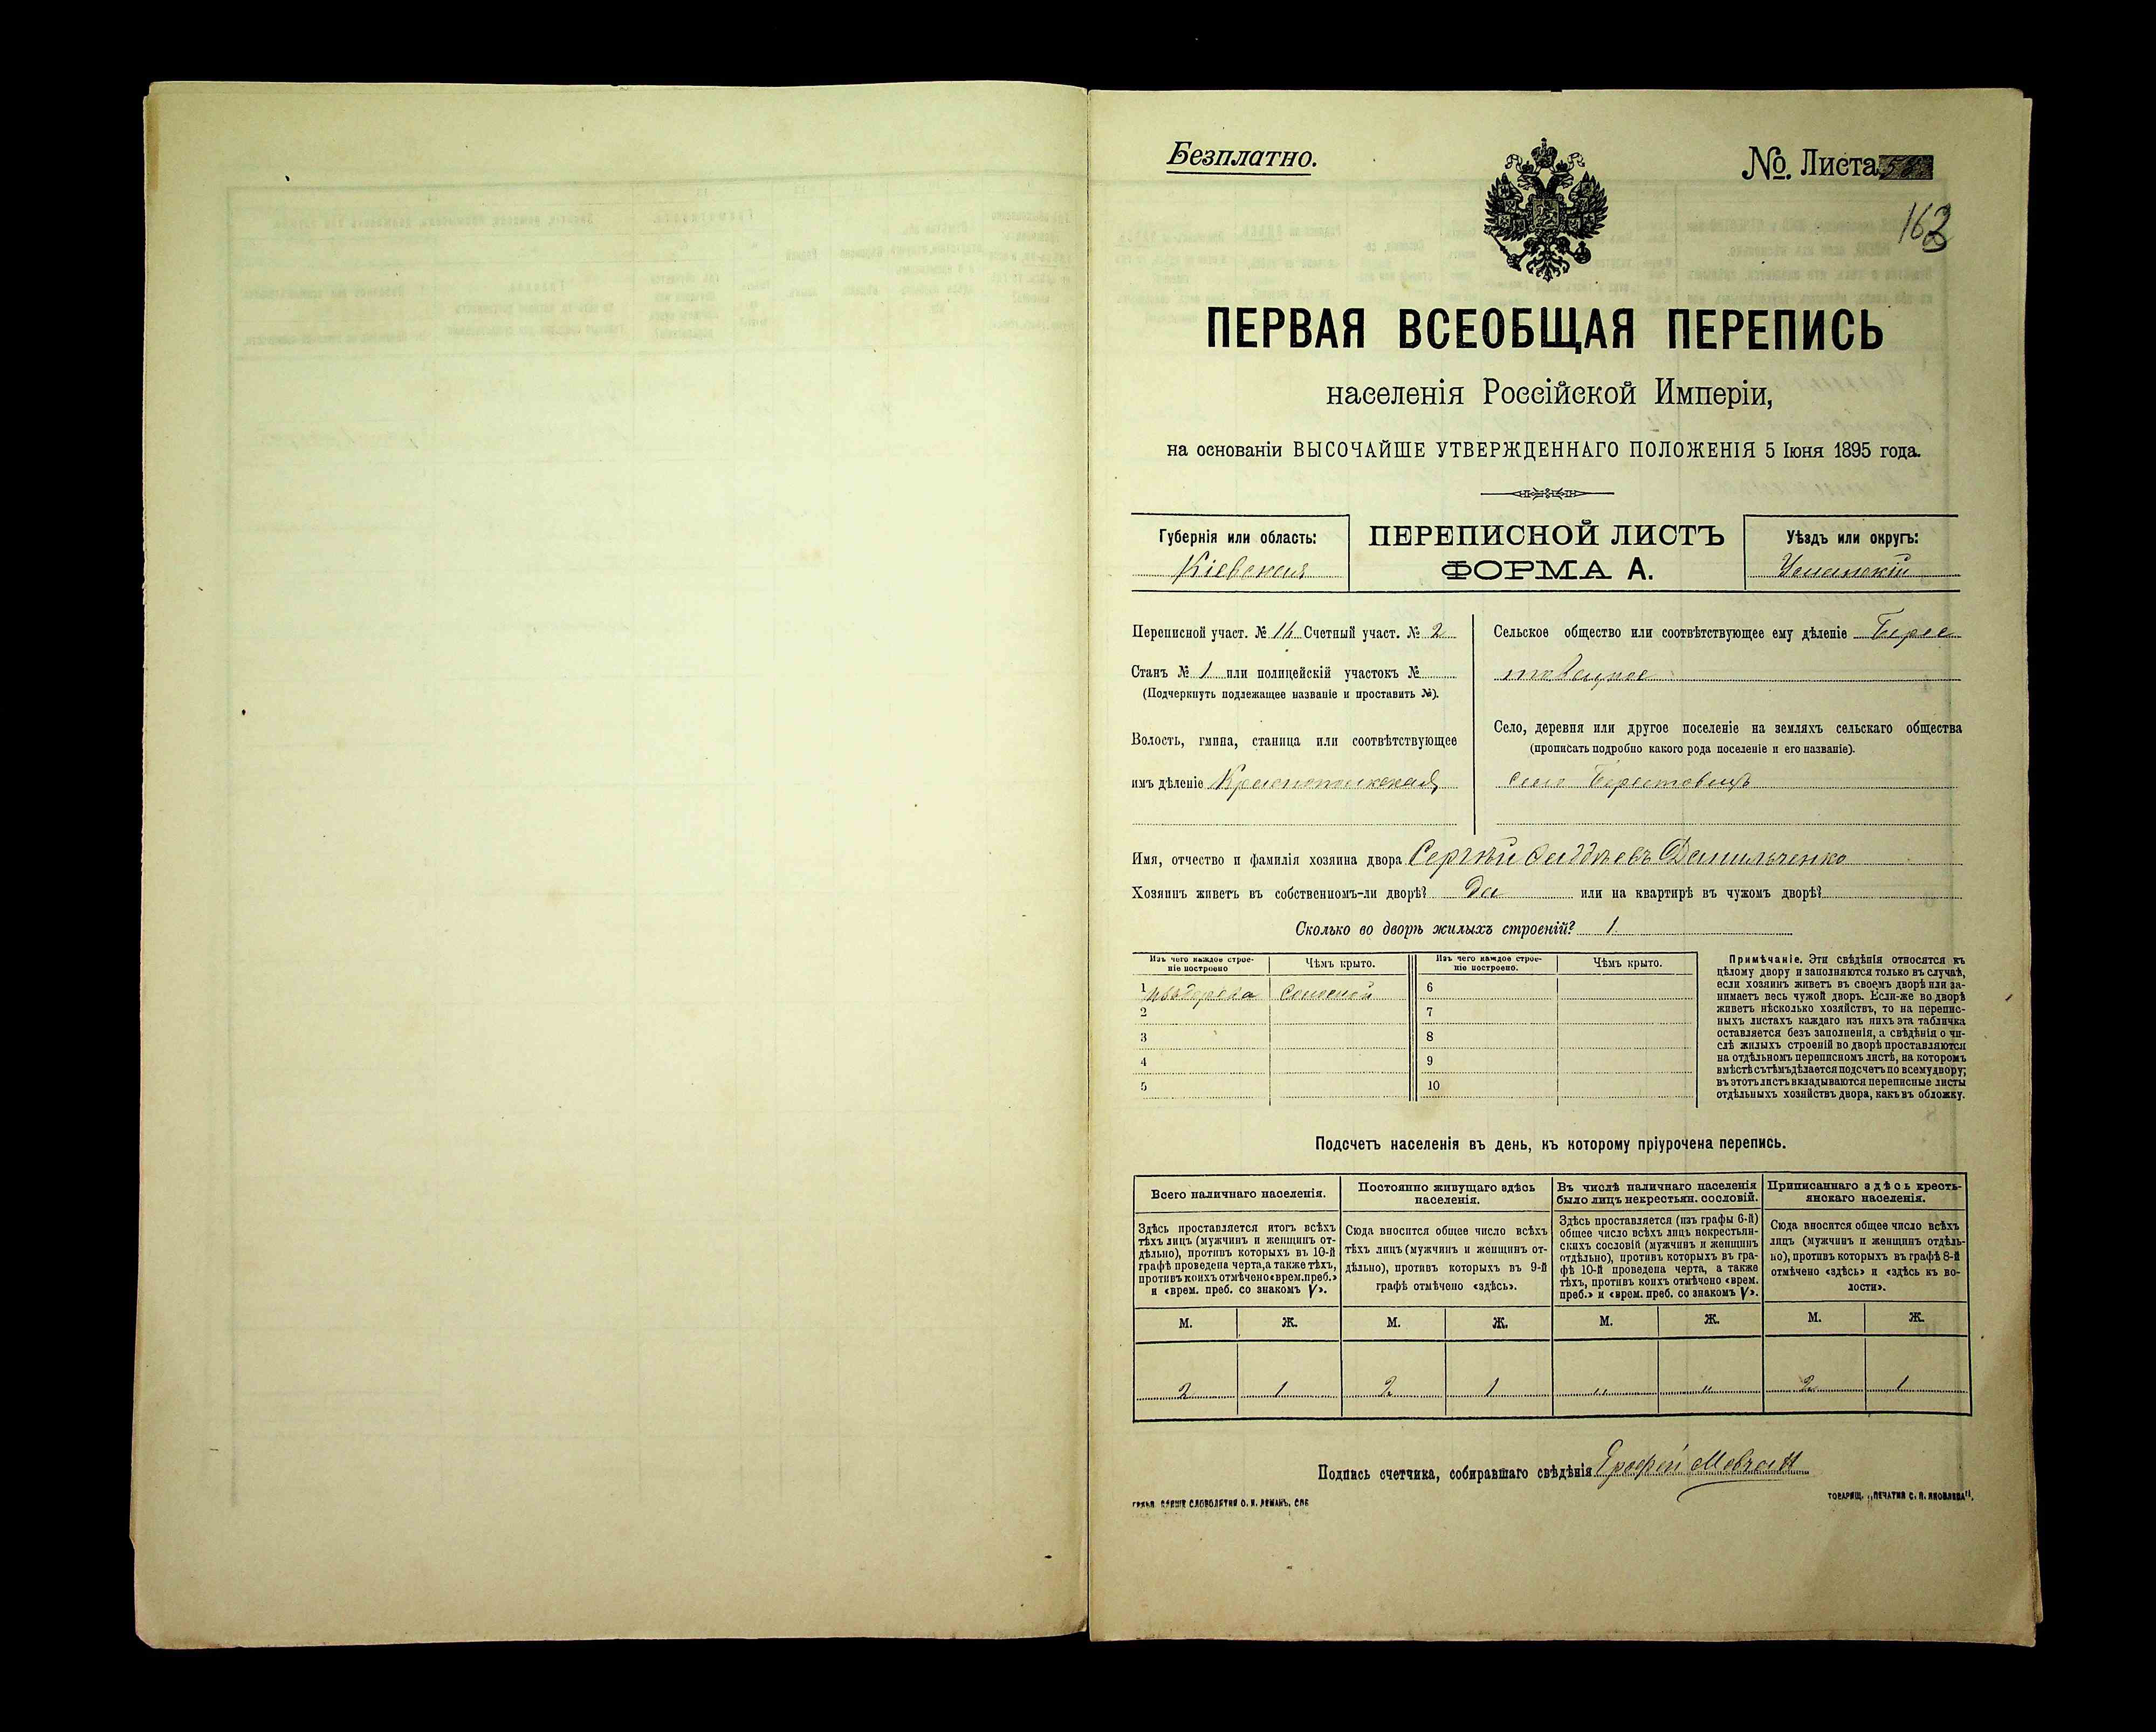 Безплатно.
№. Листа
163
ПЕРВАЯ ВСЕОБЩАЯ ПЕРЕПИСЬ
населенія Россійской Имперіи,
на основаніи ВЫСОЧАЙШЕ УТВЕРЖДЕННАГО ПОЛОЖЕНІЯ 5 Іюня 1895 года.
Губернія или область:
Кіевская
ПЕРЕПИСНОЙ ЛИСТЪ
ФОРМА А.
Уѣздъ или округъ:
Уманскій
Переписной участ. № 16 Счетный участ. № 2
Станъ № 1 или полицейскій участокъ №
(Подчеркнуть подлежащее названіе и проставить №).
Волость, гмина, станица или соотвѣтствующее
имъ дѣленіе
Сельское общество или соотвѣтствующее ему дѣленіе Берес
товецкое
Село, деревня или другое поселеніе на земляхъ сельскаго общества
(прописать подробно какого рода поселеніе и его названіе).
село Берестовецъ
Имя, отчество и фамилія хозяина двора Сергѣй Фаддѣевъ Данильченко
Хозяинъ живетъ въ собственномъ-ли дворѣ? Да или на квартирѣ въ чужомъ дворѣ?
Сколько во дворѣ жилыхъ строеній? 1
Изъ чего каждое строе-
ніе построено
Чѣмъ крыто.
1 изъ дерева Соломой
2
3
4
5
Изъ чего каждое строе-
ніе построено.
Чѣмъ крыто.
6
7
8
9
10
Примѣчаніе. Эти свѣдѣнія относятся къ
цѣлому двору и заполняются только въ случаѣ,
если хозяинъ живетъ въ своемъ дворѣ или за-
нимаетъ весь чужой дворъ. Если-же во дворѣ
живетъ нѣсколько хозяйствъ, то на перепис-
ныхъ листахъ каждаго изъ нихъ эта табличка
оставляется безъ заполненія, а свѣдѣнія о чи-
слѣ жилыхъ строеній во дворѣ проставляются
на отдѣльномъ переписномъ листѣ, на которомъ
вмѣстѣ съ тѣмъ дѣлается подсчетъ по всему двору;
въ этотъ листъ вкладываются переписные листы
отдѣльныхъ хозяйствъ двора, какъ въ обложку.
Подсчетъ населенія въ день, къ которому пріурочена перепись.
Всего наличнаго населенія.
Здѣсь проставляется итогъ всѣхъ
тѣхъ лицъ (мужчинъ и женщинъ от-
дѣльно), противъ которыхъ въ 10-й
графѣ проведена черта, а также тѣхъ,
противъ коихъ отмѣчено «врем. преб.»
и «врем. преб. со знакомъ V».
М. Ж.
2 1
Постоянно живущаго здѣсь
населенія.
Сюда вносится общее число всѣхъ
тѣхъ лицъ (мужчинъ и женщинъ от-
дѣльно), противъ которыхъ въ 9-й
графѣ отмѣчено «здѣсь».
М. Ж.
2 1
Въ числѣ наличнаго населенія
было лицъ некрестьян. сословій.
Здѣсь проставляется (изъ графы 6-й)
общее число всѣхъ лицъ некрестьян-
скихъ сословій (мужчинъ и женщинъ
отдѣльно), противъ которыхъ въ гра-
фѣ 10-й проведена черта, а также
тѣхъ, противъ коихъ отмѣчено «врем.
преб.» и «врем. преб. со знакомъ V».
М. Ж.
" "
Приписаннаго здѣсь кресть-
янскаго населенія.
Сюда вносится общее число всѣхъ
лицъ (мужчинъ и женщинъ отдѣль-
но), противъ которыхъ въ графѣ 8-й
отмѣчено «здѣсь» и «здѣсь къ во-
лости».
М. Ж.
2 1
Подпись счетчика, собиравшаго свѣдѣнія Ерофей Мовчан
СЛОВОЛИТНИ О. И. ЛЕМАНЪ, СПБ
ТОВАРИЩ. „ПЕЧАТНЯ С. П. ЯКОВЛЕВА".